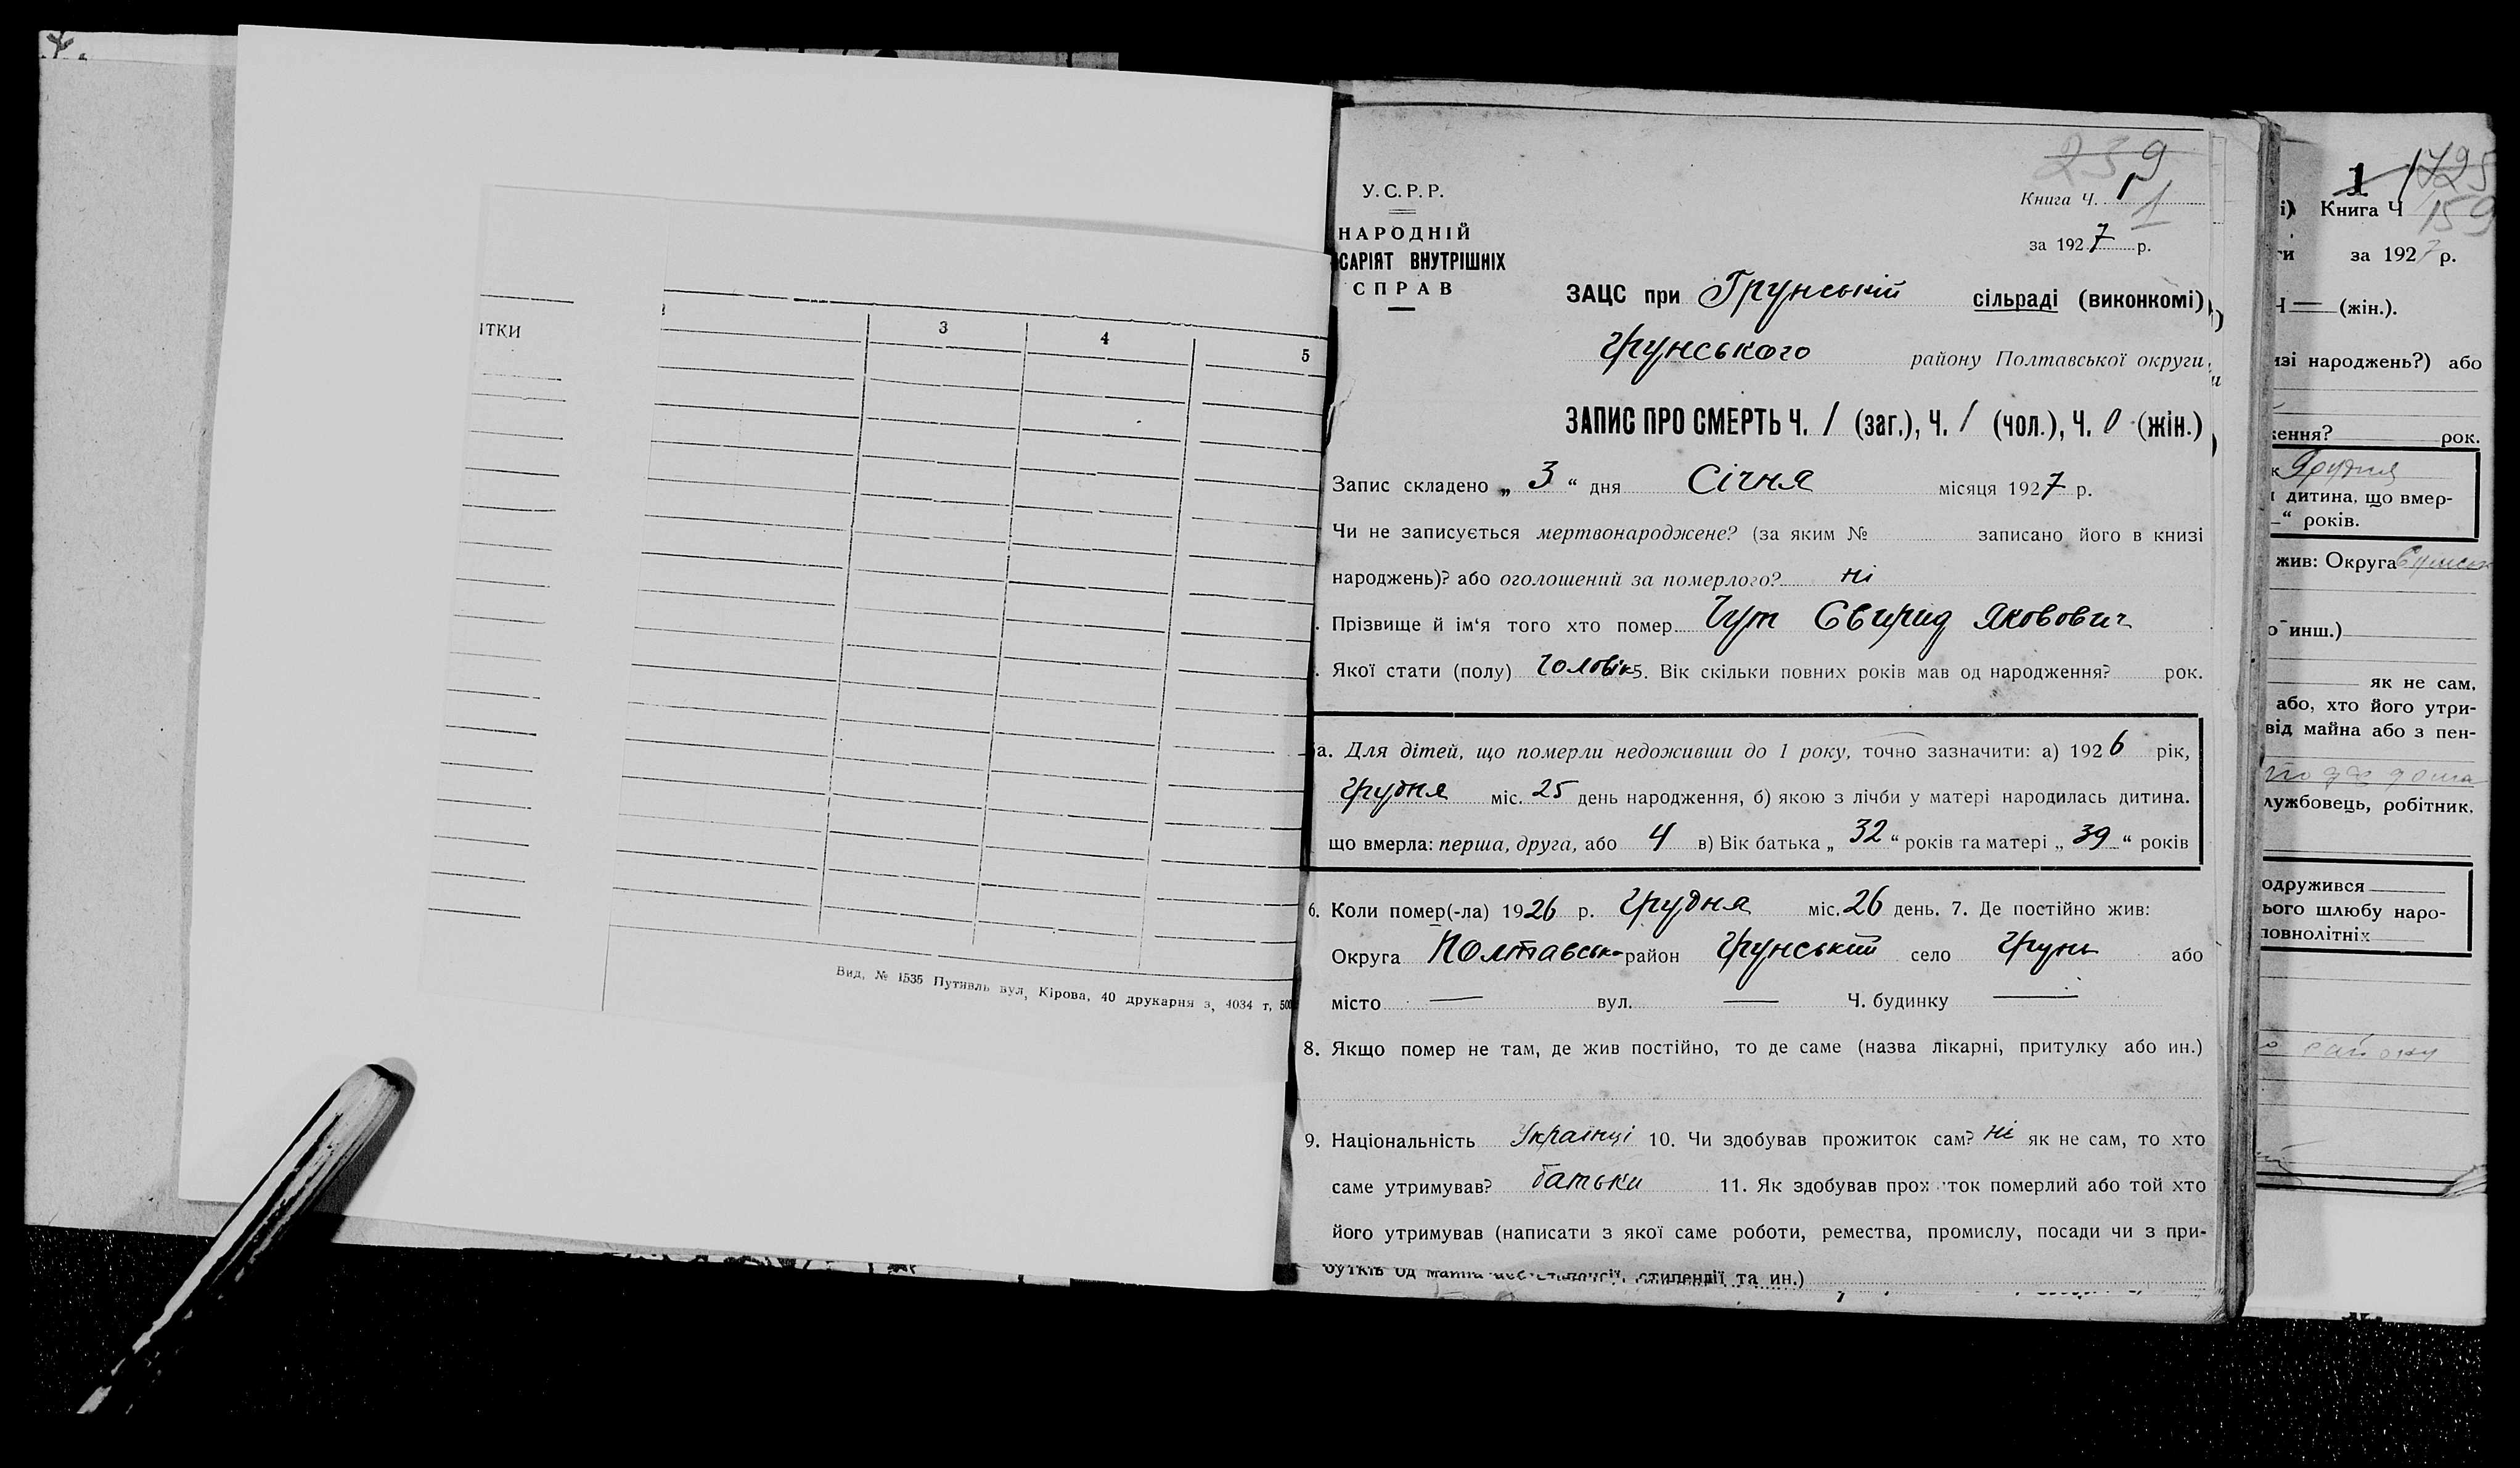 ІТКИ
3
4
5
Вид, № 1535 Путивль вул, Кірова, 40 друкарня з, 4034 т, 500
239
У.С.Р.Р.
Книга Ч. 1
1
НАРОДНІЙ
САРІЯТ ВНУТРІШНІХ
СПРАВ
за 1927 р.
ЗАЦС при Грунській сільраді (виконкомі)
Грунського району Полтавської округи
ЗАПИС ПРО СМЕРТЬ Ч. 1 (заг.), Ч. 1 (чол.), Ч. 0 (жін.)
Запис складено „ 3 “ дня Січня місяця 1927 р.
Чи не записується мертвонароджене? (за яким № записано його в книзі
народжень)? або оголошений за померлого? ні
Прізвище й ім‘я того хто помер Чут Свирид Якович
Якої стати (полу) чоловік 5. Вік скільки повних років мав од народження? рок.
а. Для дітей, що померли недоживши до 1 року, точно зазначити: а) 1926 рік,
Грудня міс. 25 день народження, б) якою з лічби у матері народилась дитина.
що вмерла: перша, друга, або 4 в) Вік батька „ 32 “ років та матері „ 39 “ років
6. Коли помер(-ла) 1926 р. Грудня міс. 26 день. 7. Де постійно жив:
Округа Полтавськ район Грунський село Грунь або
місто — вул. — Ч. будинку —
8. Якщо помер не там, де жив постійно, то де саме (назва лікарні, притулку або ин.)
9. Національність Українці 10. Чи здобував прожиток сам? ні як не сам, то хто
саме утримував? батьки 11. Як здобував прож ток померлий або той хто
його утримував (написати з якої саме роботи, ремества, промислу, посади чи з при-
бутків од майна стипендії та ин.)
1 1725
і) Книга Ч 159
ти за 1927 р.
Ч — (жін.).
изі народжень?) або
ення? рок.
к Грудня
дитина, що вмер-
“ років.
жив: Округа
о инш.)
як не сам,
або, хто його утри-
від майна або з пен-
лужбовець, робітник,
одружився
ього шлюбу наро-
повнолітніх
району